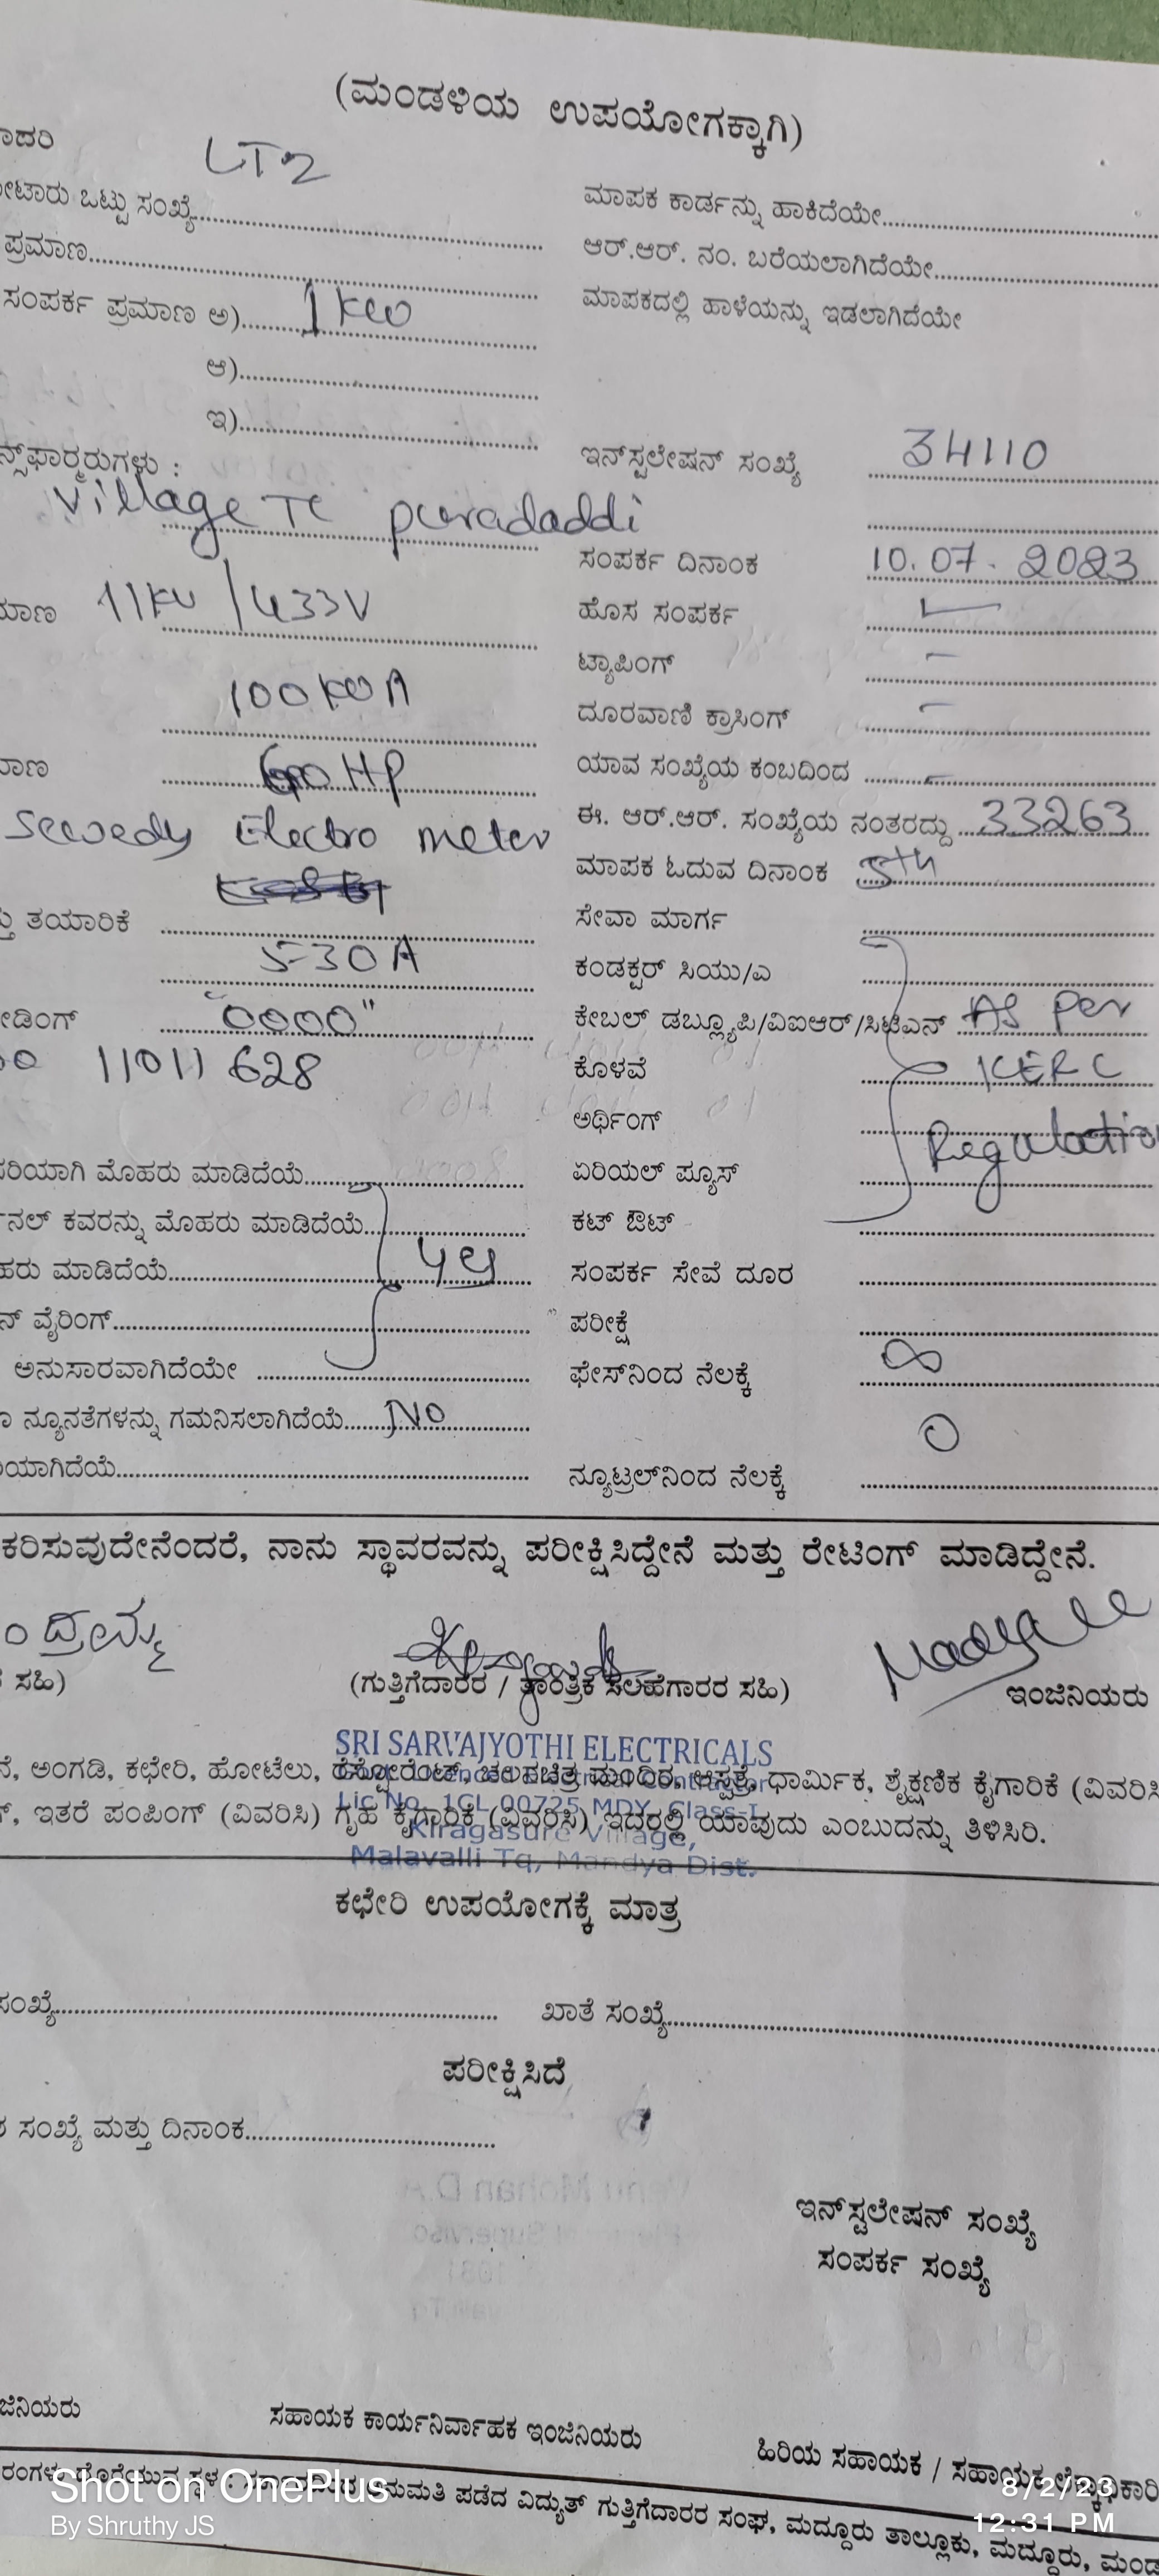 (ಮಂಡಳಿಯ ಉಪಯೋಗಕ್ಕಾಗಿ)
ಾದರಿ LT2
ೀಟಾರು ಒಟ್ಟು ಸಂಖ್ಯೆ
ಮಾಪಕ ಕಾರ್ಡನ್ನು ಹಾಕಿದೆಯೇ
ಪ್ರಮಾಣ
ಆರ್.ಆರ್. ನಂ. ಬರೆಯಲಾಗಿದೆಯೇ
ಸಂಪರ್ಕ ಪ್ರಮಾಣ ಅ) 1 KW
ಮಾಪಕದಲ್ಲಿ ಹಾಳೆಯನ್ನು ಇಡಲಾಗಿದೆಯೇ
ಆ)
ಇ)
ನ್ಸ್‌ಫಾರ್ಮರುಗಳು :
ಇನ್‌ಸ್ಟಲೇಷನ್ ಸಂಖ್ಯೆ 34110
Village TC puradaddi
ಸಂಪರ್ಕ ದಿನಾಂಕ 10.07.2023
ಮಾಣ 11KV/433V
ಹೊಸ ಸಂಪರ್ಕ
ಟ್ಯಾಪಿಂಗ್ -
100 KVA
ದೂರವಾಣಿ ಕ್ರಾಸಿಂಗ್ -
ಮಾಣ HP
ಯಾವ ಸಂಖ್ಯೆಯ ಕಂಬದಿಂದ -
Electro meter
ಈ. ಆರ್.ಆರ್. ಸಂಖ್ಯೆಯ ನಂತರದ್ದು 33263
ಮಾಪಕ ಓದುವ ದಿನಾಂಕ 5th
ತ್ತು ತಯಾರಿಕೆ
ಸೇವಾ ಮಾರ್ಗ
5-30A
ಕಂಡಕ್ಟರ್ ಸಿಯು/ಎ
ೀಡಿಂಗ್ "0000"
ಕೇಬಲ್ ಡಬ್ಲ್ಯೂಪಿ/ವಿಐಆರ್/ಸಿಟಿಎನ್ As per
11011628
ಕೊಳವೆ KERC
ಅರ್ಥಿಂಗ್ Regulation
ರಿಯಾಗಿ ಮೊಹರು ಮಾಡಿದೆಯೆ
ಏರಿಯಲ್ ಪ್ಯೂಸ್
ನಲ್ ಕವರನ್ನು ಮೊಹರು ಮಾಡಿದೆಯೆ
ಕಟ್ ಔಟ್
ಹರು ಮಾಡಿದೆಯೆ
ಸಂಪರ್ಕ ಸೇವೆ ದೂರ
ನ್ ವೈರಿಂಗ್
ಪರೀಕ್ಷೆ
ಅನುಸಾರವಾಗಿದೆಯೇ
ಫೇಸ್‌ನಿಂದ ನೆಲಕ್ಕೆ ∞
ನ್ಯೂನತೆಗಳನ್ನು ಗಮನಿಸಲಾಗಿದೆಯೆ No
ಯಾಗಿದೆಯೆ
ನ್ಯೂಟ್ರಲ್‌ನಿಂದ ನೆಲಕ್ಕೆ 0
ಕರಿಸುವುದೇನೆಂದರೆ, ನಾನು ಸ್ಥಾವರವನ್ನು ಪರೀಕ್ಷಿಸಿದ್ದೇನೆ ಮತ್ತು ರೇಟಿಂಗ್ ಮಾಡಿದ್ದೇನೆ.
ಸಹಿ)
(ಗುತ್ತಿಗೆದಾರರ / ತಾಂತ್ರಿಕ ಸಲಹೆಗಾರರ ಸಹಿ)
ಇಂಜಿನಿಯರು
SRI SARVAJYOTHI ELECTRICALS
ನೆ, ಅಂಗಡಿ, ಕಛೇರಿ, ಹೋಟೆಲು, ರೆಸ್ಟೋರೆಂಟ್, ಚಲನಚಿತ್ರ ಮಂದಿರ, ಆಸ್ಪತ್ರೆ, ಧಾರ್ಮಿಕ, ಶೈಕ್ಷಣಿಕ ಕೈಗಾರಿಕೆ (ವಿವರಿಸಿ
Lic No. 1CL 00725 MDY, Class-I
್, ಇತರೆ ಪಂಪಿಂಗ್ (ವಿವರಿಸಿ) ಗೃಹ ಕೈಗಾರಿಕೆ (ವಿವರಿಸಿ) ಇದರಲ್ಲಿ ಯಾವುದು ಎಂಬುದನ್ನು ತಿಳಿಸಿರಿ.
Kiragasure Village,
Malavalli Tq, Mandya Dist.
ಕಛೇರಿ ಉಪಯೋಗಕ್ಕೆ ಮಾತ್ರ
ಸಂಖ್ಯೆ
ಖಾತೆ ಸಂಖ್ಯೆ
ಪರೀಕ್ಷಿಸಿದೆ
ಸಂಖ್ಯೆ ಮತ್ತು ದಿನಾಂಕ
ಇನ್‌ಸ್ಟಲೇಷನ್ ಸಂಖ್ಯೆ
ಸಂಪರ್ಕ ಸಂಖ್ಯೆ
ಜಿನಿಯರು
ಸಹಾಯಕ ಕಾರ್ಯನಿರ್ವಾಹಕ ಇಂಜಿನಿಯರು
ಹಿರಿಯ ಸಹಾಯಕ / ಸಹಾಯಕ ಲೆಕ್ಕಾಧಿಕಾರಿ
ಅನುಮತಿ ಪಡೆದ ವಿದ್ಯುತ್ ಗುತ್ತಿಗೆದಾರರ ಸಂಘ, ಮದ್ದೂರು ತಾಲ್ಲೂಕು, ಮದ್ದೂರು, ಮಂಡ
Shot on OnePlus
By Shruthy JS
8/2/23
12:31 PM